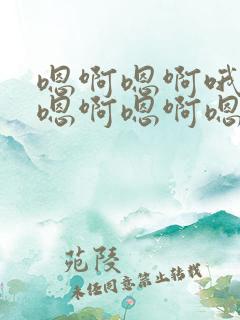 嗯啊嗯啊哦
嗯啊嗯啊嗯
苑陵
未经同意禁止转载